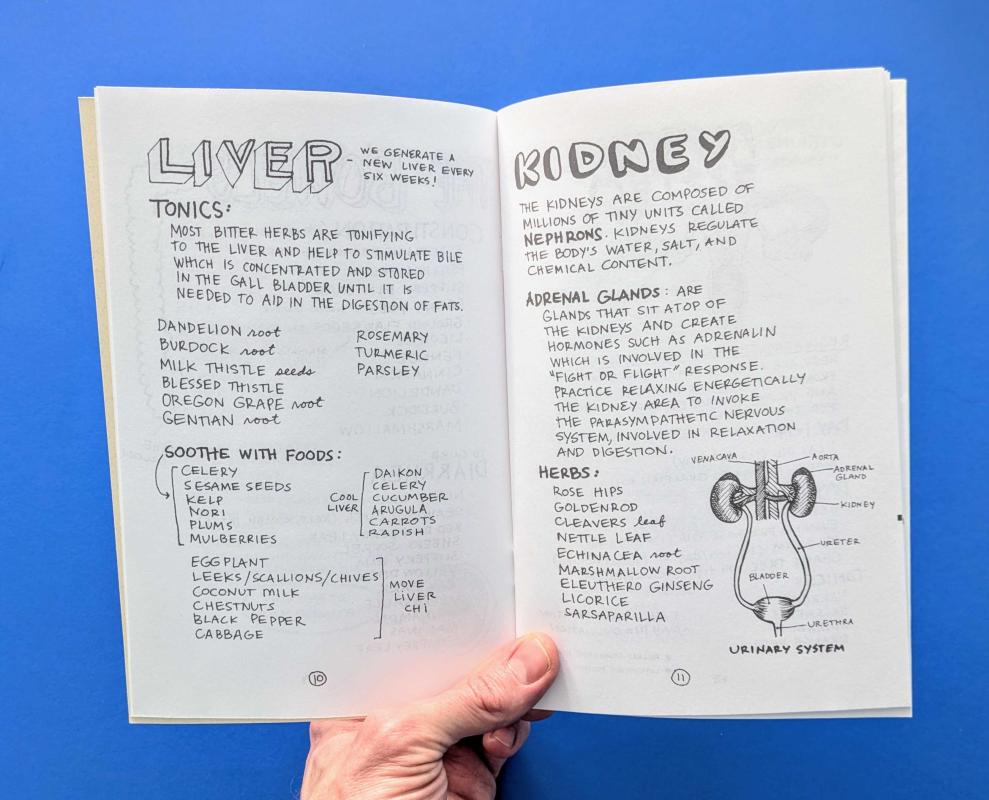 LIVER - WE GENERATE A
NEW LIVER EVERY
SIX WEEKS!
TONICS:
MOST BITTER HERBS ARE TONIFYING
TO THE LIVER AND HELP TO STIMULATE BILE
WHICH IS CONCENTRATED AND STORED
IN THE GALL BLADDER UNTIL IT IS
NEEDED TO AID IN THE DIGESTION OF FATS.
DANDELION root
BURDOCK root
MILK THISTLE seeds
BLESSED THISTLE
OREGON GRAPE root
GENTIAN root
ROSEMARY
TURMERIC
PARSLEY
SOOTHE WITH FOODS:
CELERY
SESAME SEEDS
KELP
NORI
PLUMS
MULBERRIES
COOL
LIVER
DAIKON
CELERY
CUCUMBER
ARUGULA
CARROTS
RADISH
EGGPLANT
LEEKS/SCALLIONS/CHIVES
COCONUT MILK
CHESTNUTS
BLACK PEPPER
CABBAGE
MOVE
LIVER
CHI
10
KIDNEY
THE KIDNEYS ARE COMPOSED OF
MILLIONS OF TINY UNITS CALLED
NEPHRONS. KIDNEYS REGULATE
THE BODY'S WATER, SALT, AND
CHEMICAL CONTENT.
ADRENAL GLANDS: ARE
GLANDS THAT SIT ATOP OF
THE KIDNEYS AND CREATE
HORMONES SUCH AS ADRENALIN
WHICH IS INVOLVED IN THE
"FIGHT OR FLIGHT" RESPONSE.
PRACTICE RELAXING ENERGETICALLY
THE KIDNEY AREA TO INVOKE
THE PARASYMPATHETIC NERVOUS
SYSTEM, INVOLVED IN RELAXATION
AND DIGESTION.
HERBS:
ROSE HIPS
GOLDENROD
CLEAVERS leaf
NETTLE LEAF
ECHINACEA root
MARSHMALLOW ROOT
ELEUTHERO GINSENG
LICORICE
SARSAPARILLA
VENA CAVA
AORTA
ADRENAL
GLAND
KIDNEY
URETER
BLADDER
URETHRA
URINARY SYSTEM
11